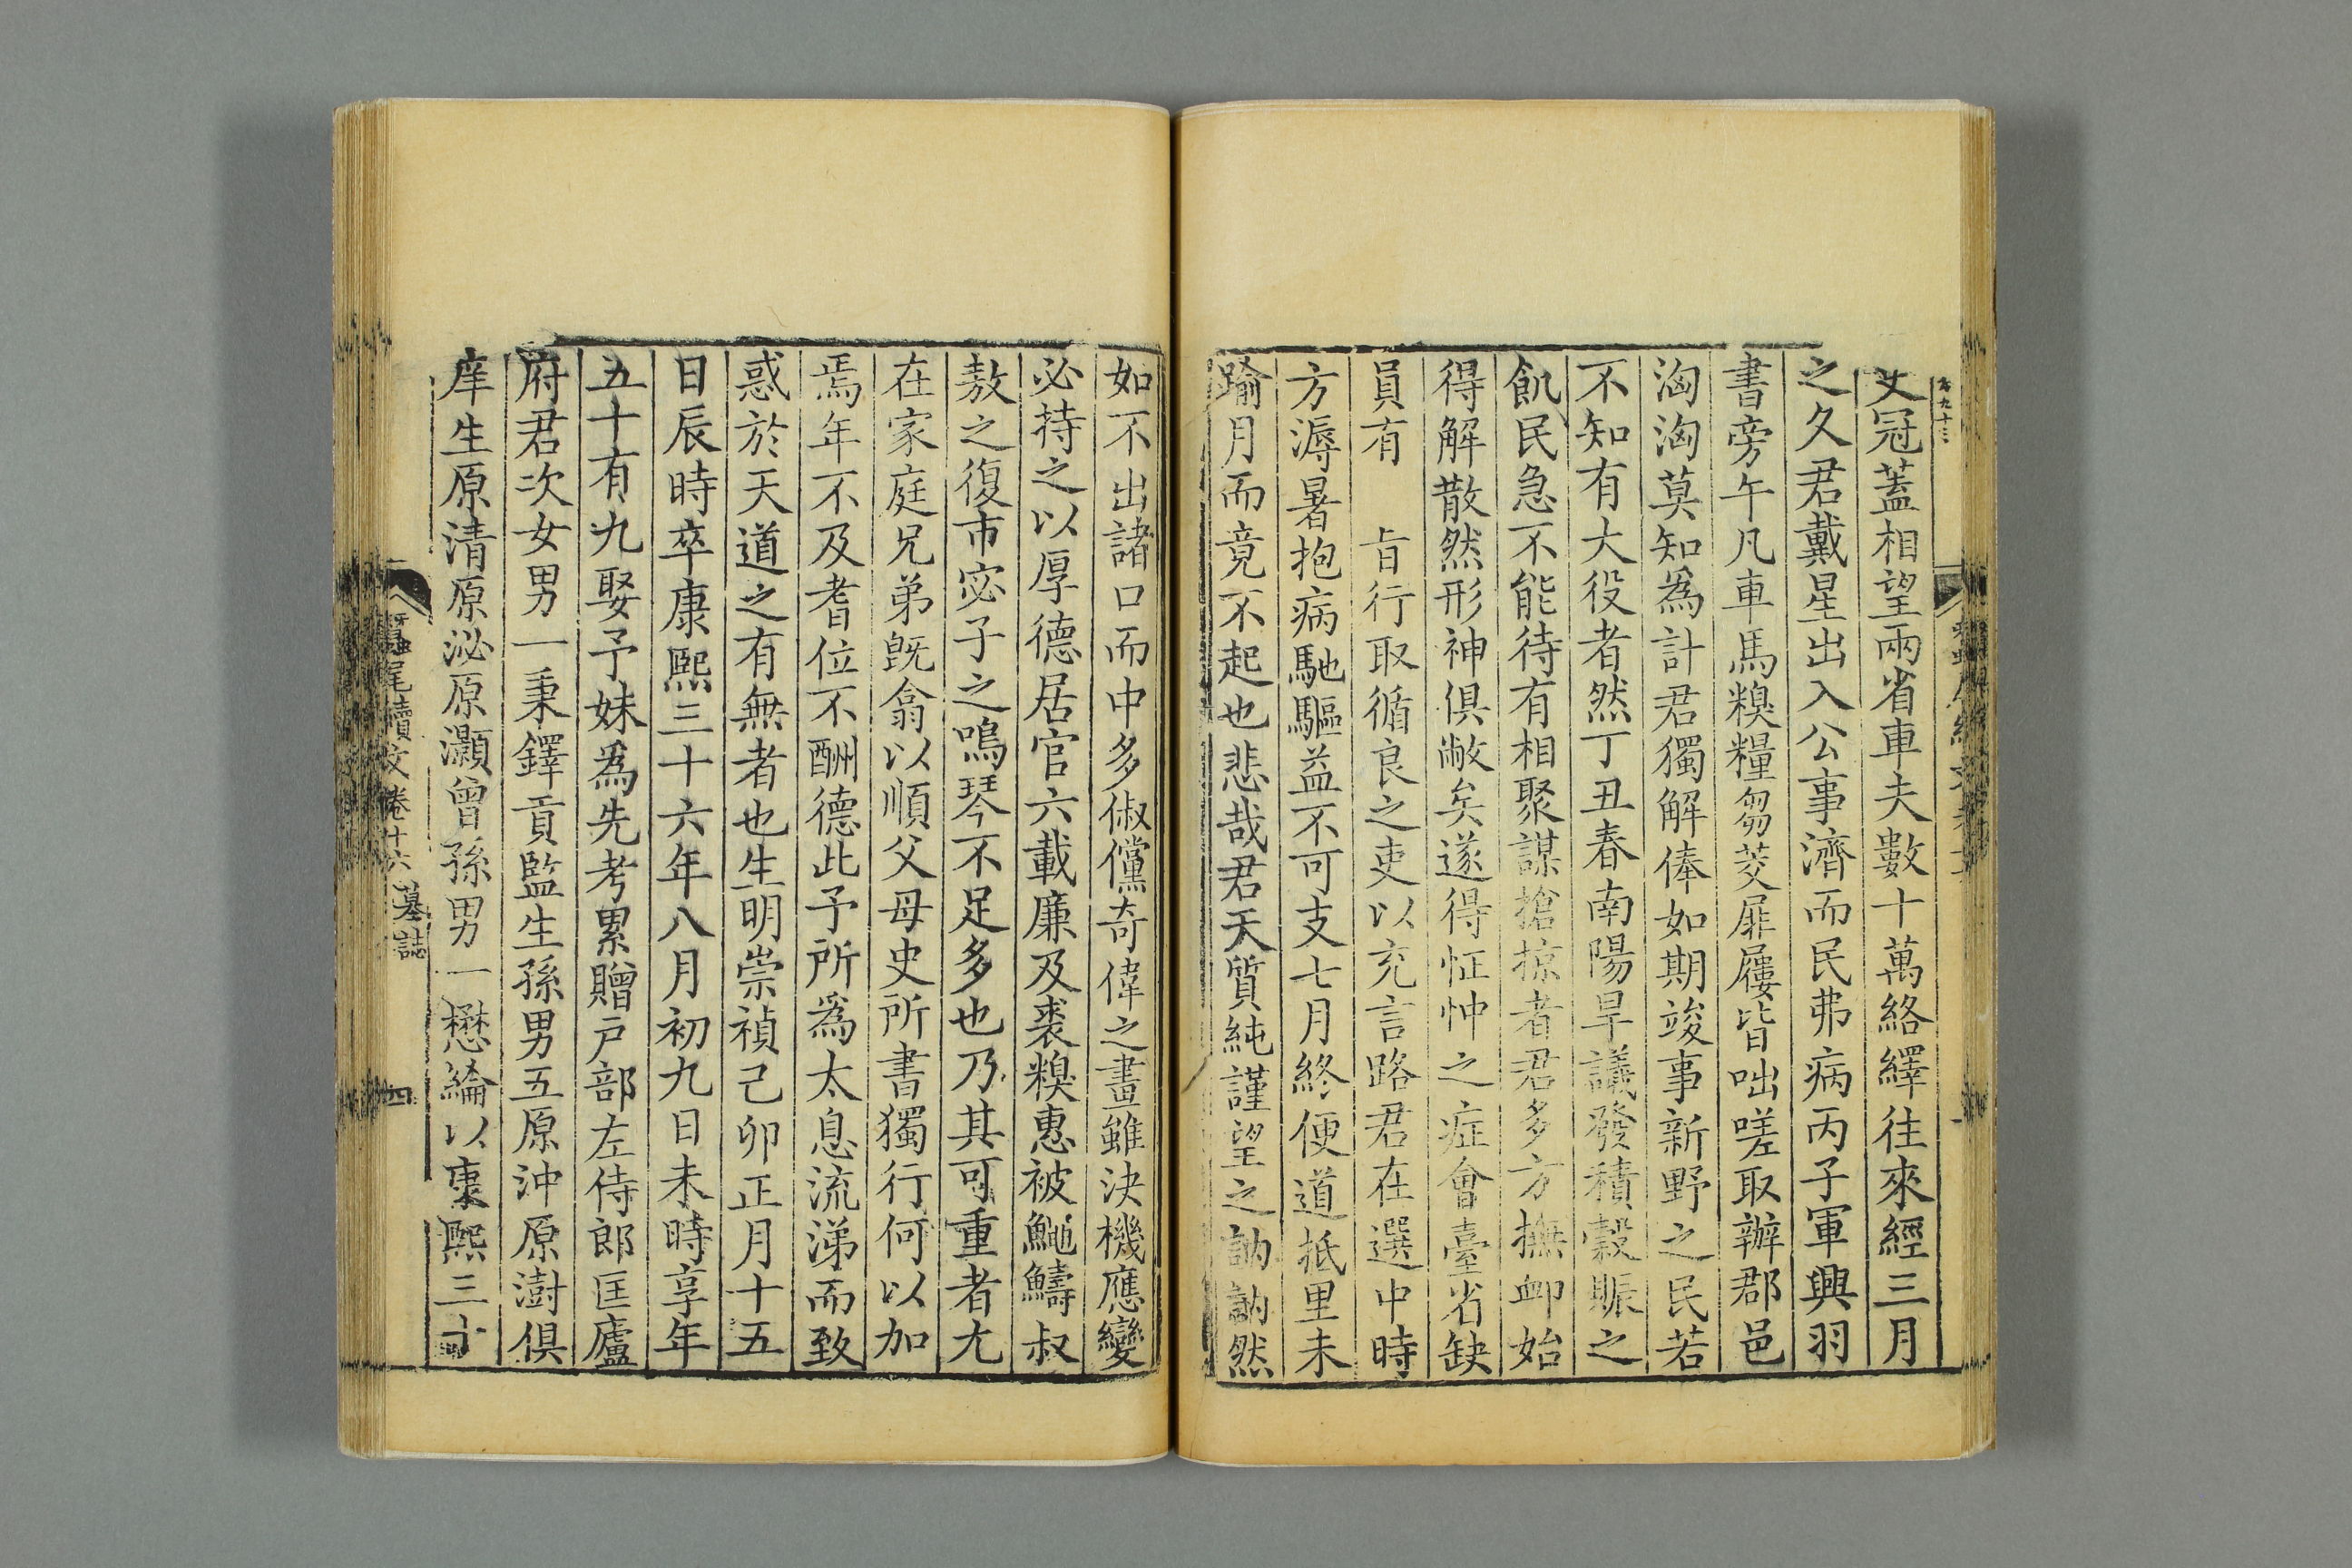 文冠蓋相望兩省車夫數十萬絡繹往來經三月
之久君戴星出入公事濟而民弗病丙子軍興羽
書旁午凡車馬糗糧芻茭屝屨皆咄嗟取辦郡邑
洶洶莫知爲計君獨解俸如期竣事新野之民若
不知有大役者然丁丑春南陽旱議發積穀賑之
飢民急不能待有相聚謀搶掠者君多方撫卹始
得解散然形神俱敝矣遂得怔忡之症會臺省缺
員有 旨行取循良之吏以充言路君在選中時
方溽暑抱病馳驅益不可支七月終便道抵里未
踰月而竟不起也悲哉君天質純謹望之訥訥然
如不出諸口而中多俶儻奇偉之畫雖決機應變
必持之以厚德居官六載廉及裘糗惠被鯅鱮叔
敖之復市宓子之鳴琴不足多也乃其可重者尤
在家庭兄弟旣翕以順父母史所書獨行何以加
焉年不及耆位不酬德此予所爲太息流涕而致
惑於天道之有無者也生明崇禎己卯正月十五
日辰時卒康熙三十六年八月初九日未時享年
五十有九娶予妹爲先考累贈戶部左侍郎匡廬
府君次女男一秉鐸貢監生孫男五原沖原澍俱
庠生原清原泌原灝曾孫男一懋綸以康熙三十
蠶尾續文卷十六 墓誌 四